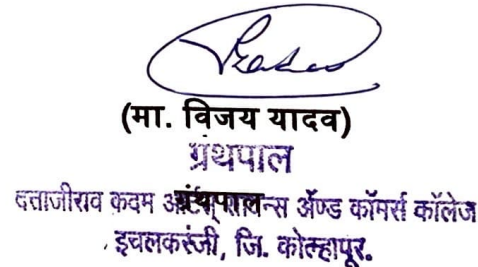 (मा. विजय यादव)
ग्रंथपाल
दत्ताजीराव कदम आर्टस् सायन्स ॲण्ड कॉमर्स कॉलेज
ग्रंथपाल
इचलकरंजी, जि. कोल्हापूर.